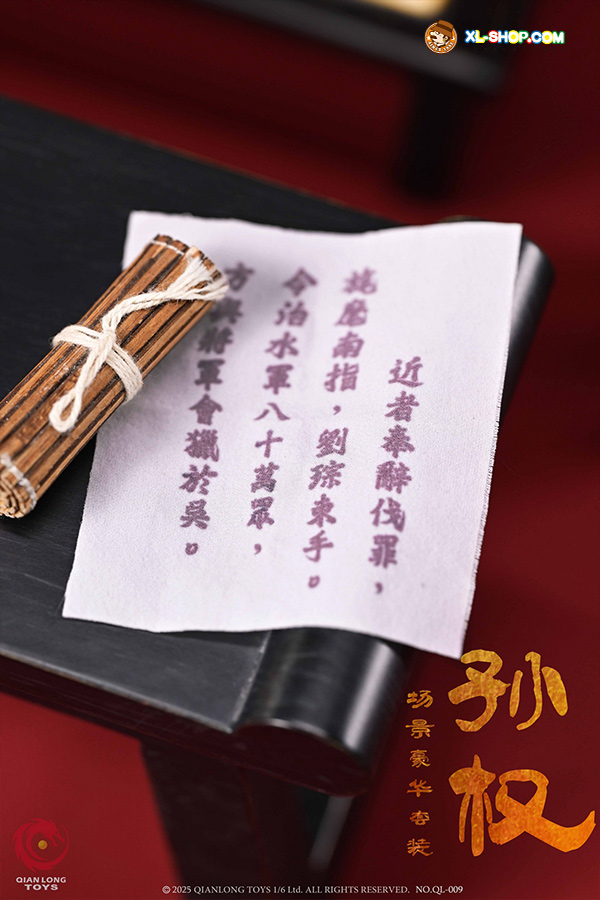 XL-SHOP.COM
近者奉辭伐罪，
旄麾南指，劉琮束手。
今治水軍八十萬眾，
方與將軍會獵於吳。
孙权
场景豪华套装
QIANLONG
TOYS
© 2025 QIANLONG TOYS 1/6 Ltd. ALL RIGHTS RESERVED. NO.QL-009